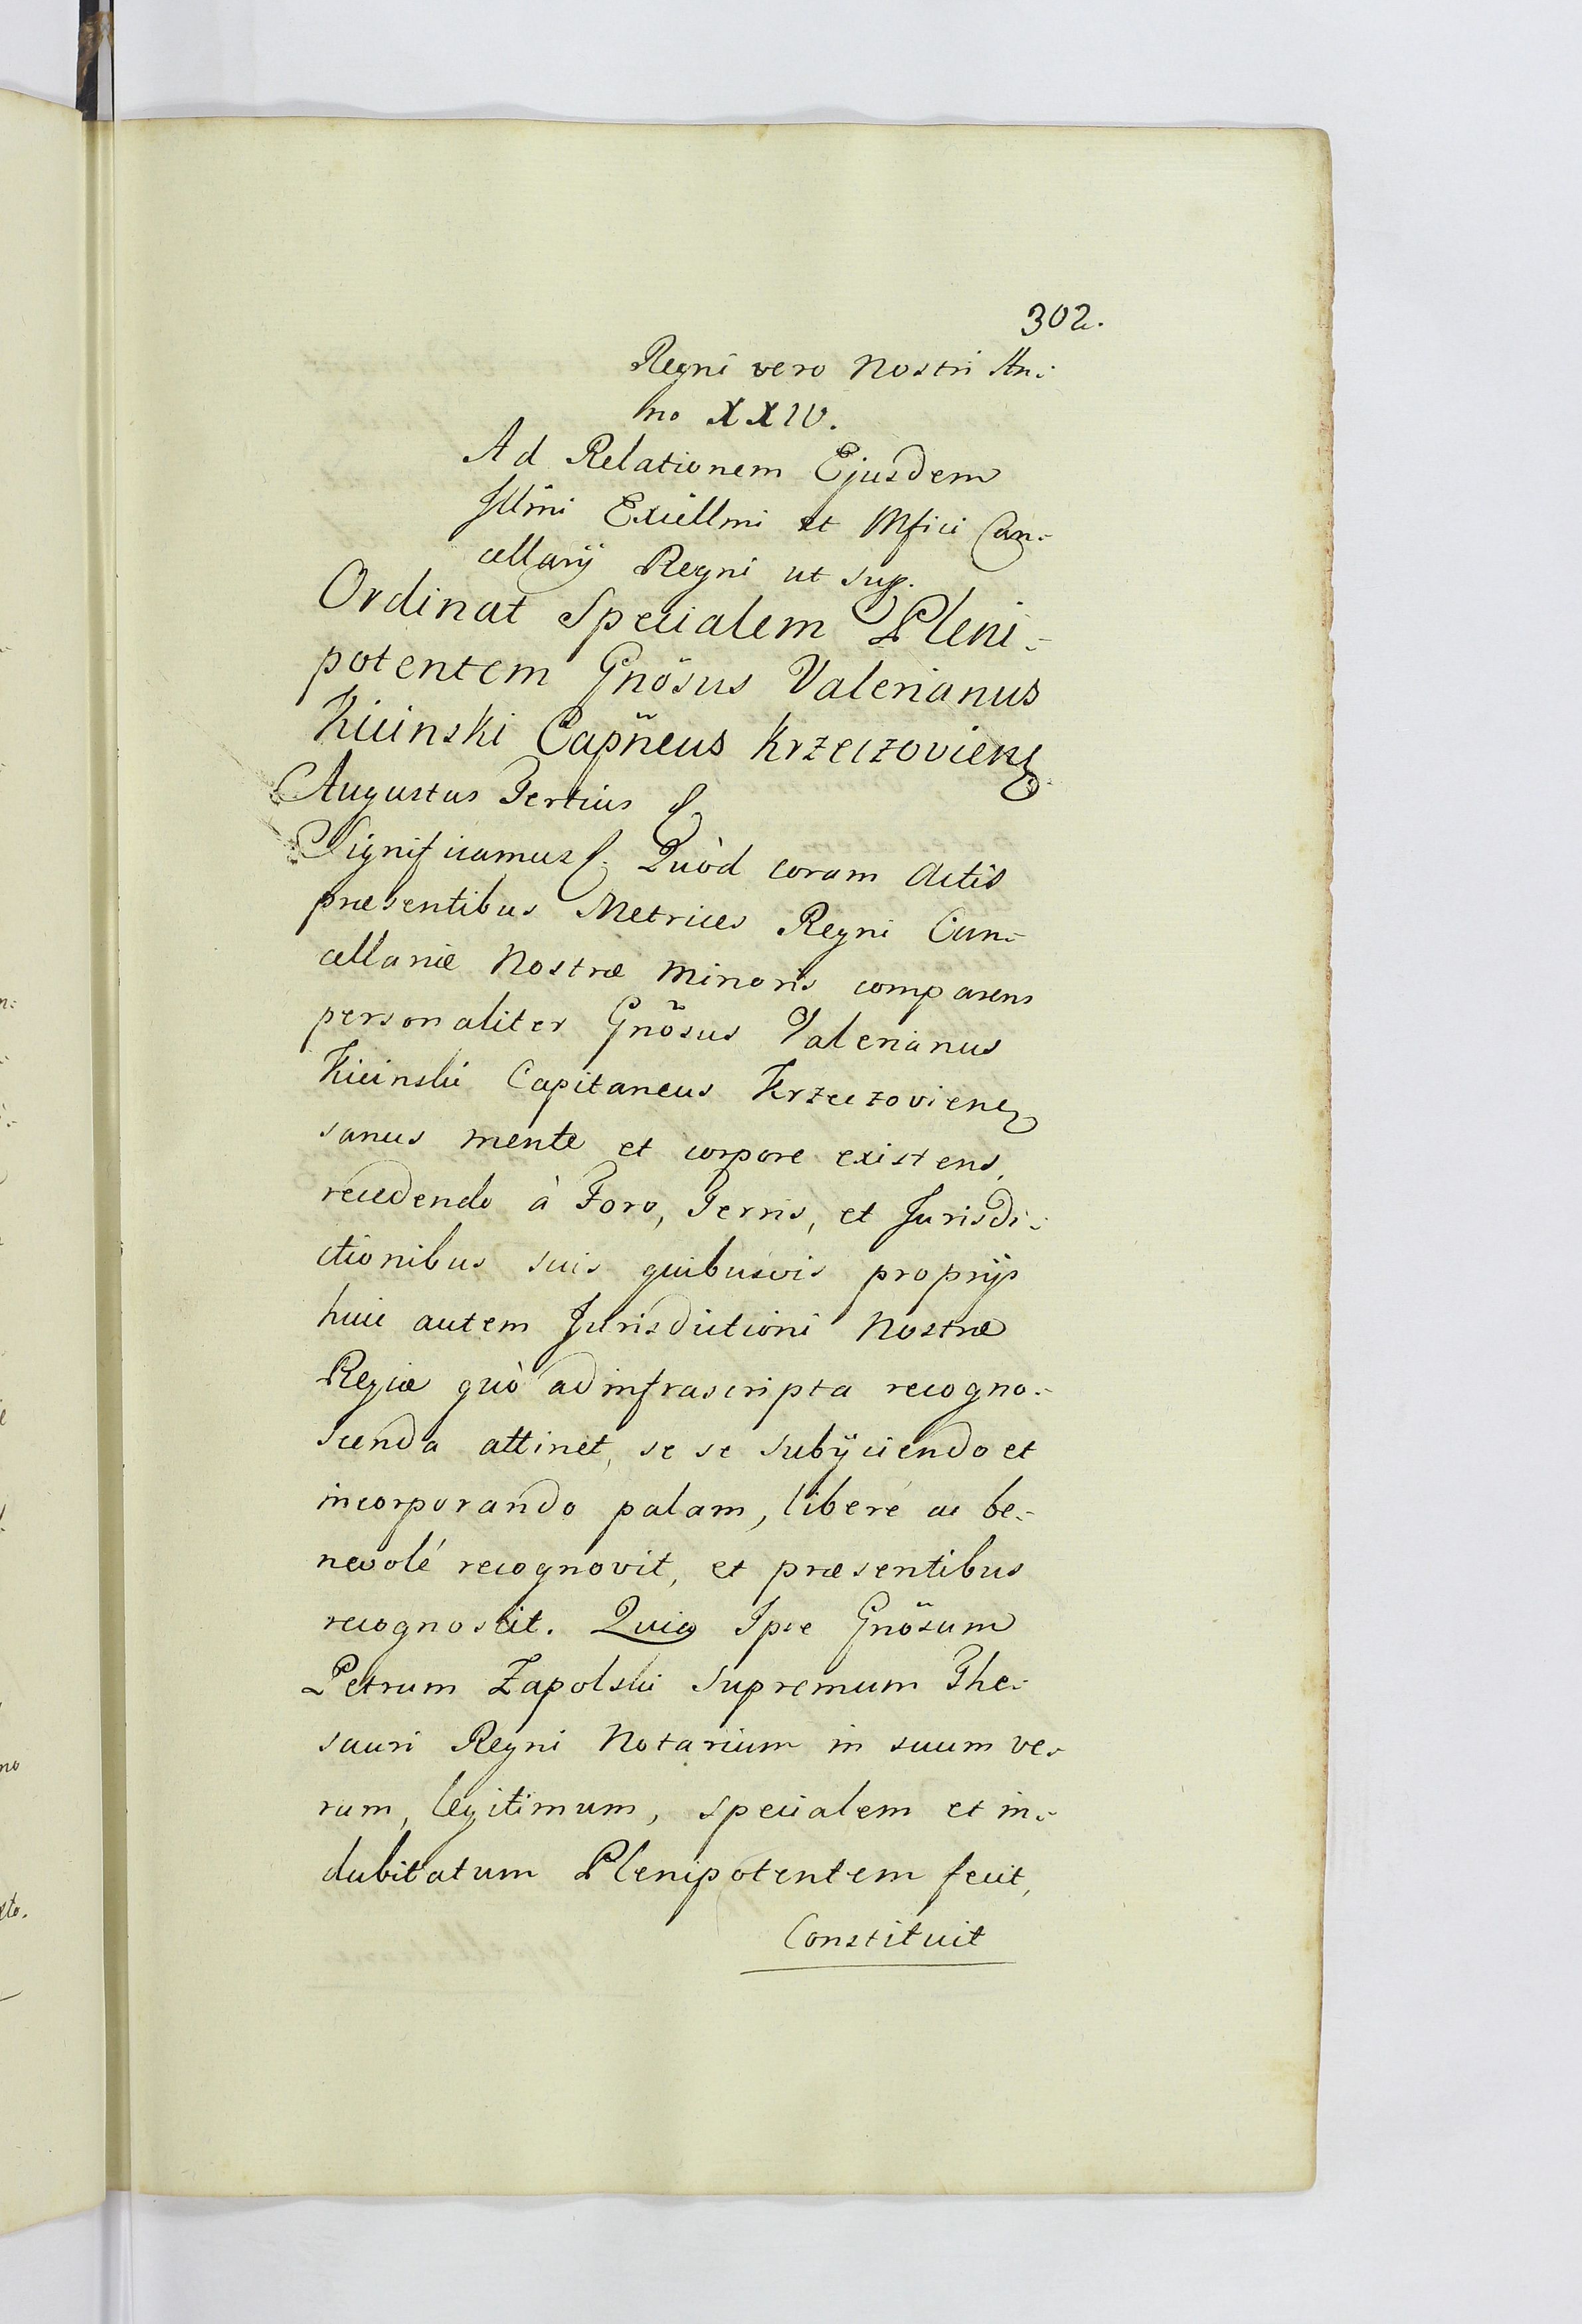 302.
Regni vero Nostri An:
no XXIV.
Ad Relationem Ejusdem
Illmi Excellmi et Mfici Can:
cellarij Regni ut sup.
Ordinat Specialem Pleni:
potentem Gnõsus Valerianus
Kicinski Capñeus Krzeczoviens
Augustus Tertius &
Significamus &. Quòd coram Actis
præsentibus Metrices Regni Can:
cellariæ Nostræ Minoris comparens
personaliter Gnõsus Valerianus
Kicinski Capitaneus Krzeczoviens
sanus mente et corpore existens,
recedendo à Foro, Terris, et Jurisdi:
ctionibus suis quibusvis proprijs
huic autem Jurisdictioni Nostræ
Regiæ quò ad infrascripta recogno:
scenda attinet, se se subijciendo et
incorporando palam, liberé ac be:
nevolé recognovit, et præsentibus
recognoscit. Quia Ipse Gnõsum
Petrum Zapolski Supremum The:
sauri Regni Notarium in suum ve:
rum, legitimum, specialem et in:
dubitatum Plenipotentem fecit,
Constituit